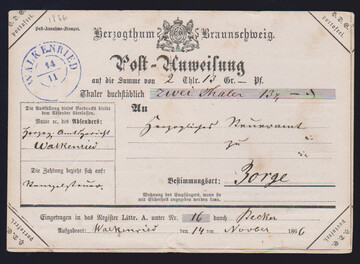 1866
Post-Annahme-Stempel.
Herzogthum Braunschweig.
WALKENRIED
14
11
Post-Anweisung
auf die Summe von 2 Thlr. 13 Gr. — Pf.
Thaler buchstäblich zwei Thaler 13
Die Ausfüllung dieses Vordrucks bleibt
dem Absender überlassen.
Name etc. des Absenders:
Herzog. Amtsgericht
Walkenried
Die Zahlung bezieht sich auf:
Stempelsteuer.
An
Herzogliches Steueramt
zu
Bestimmungsort: Zorge.
Wohnung des Empfängers, wenn sie
mit Sicherheit angegeben werden kann.
Eingetragen in das Register Littr. A. unter Nr. 16 durch Becker
Aufgabeort: Walkenried den 14 ten Novbr 1866
Portofrei.
Portofrei.
Portofrei.
Portofrei.